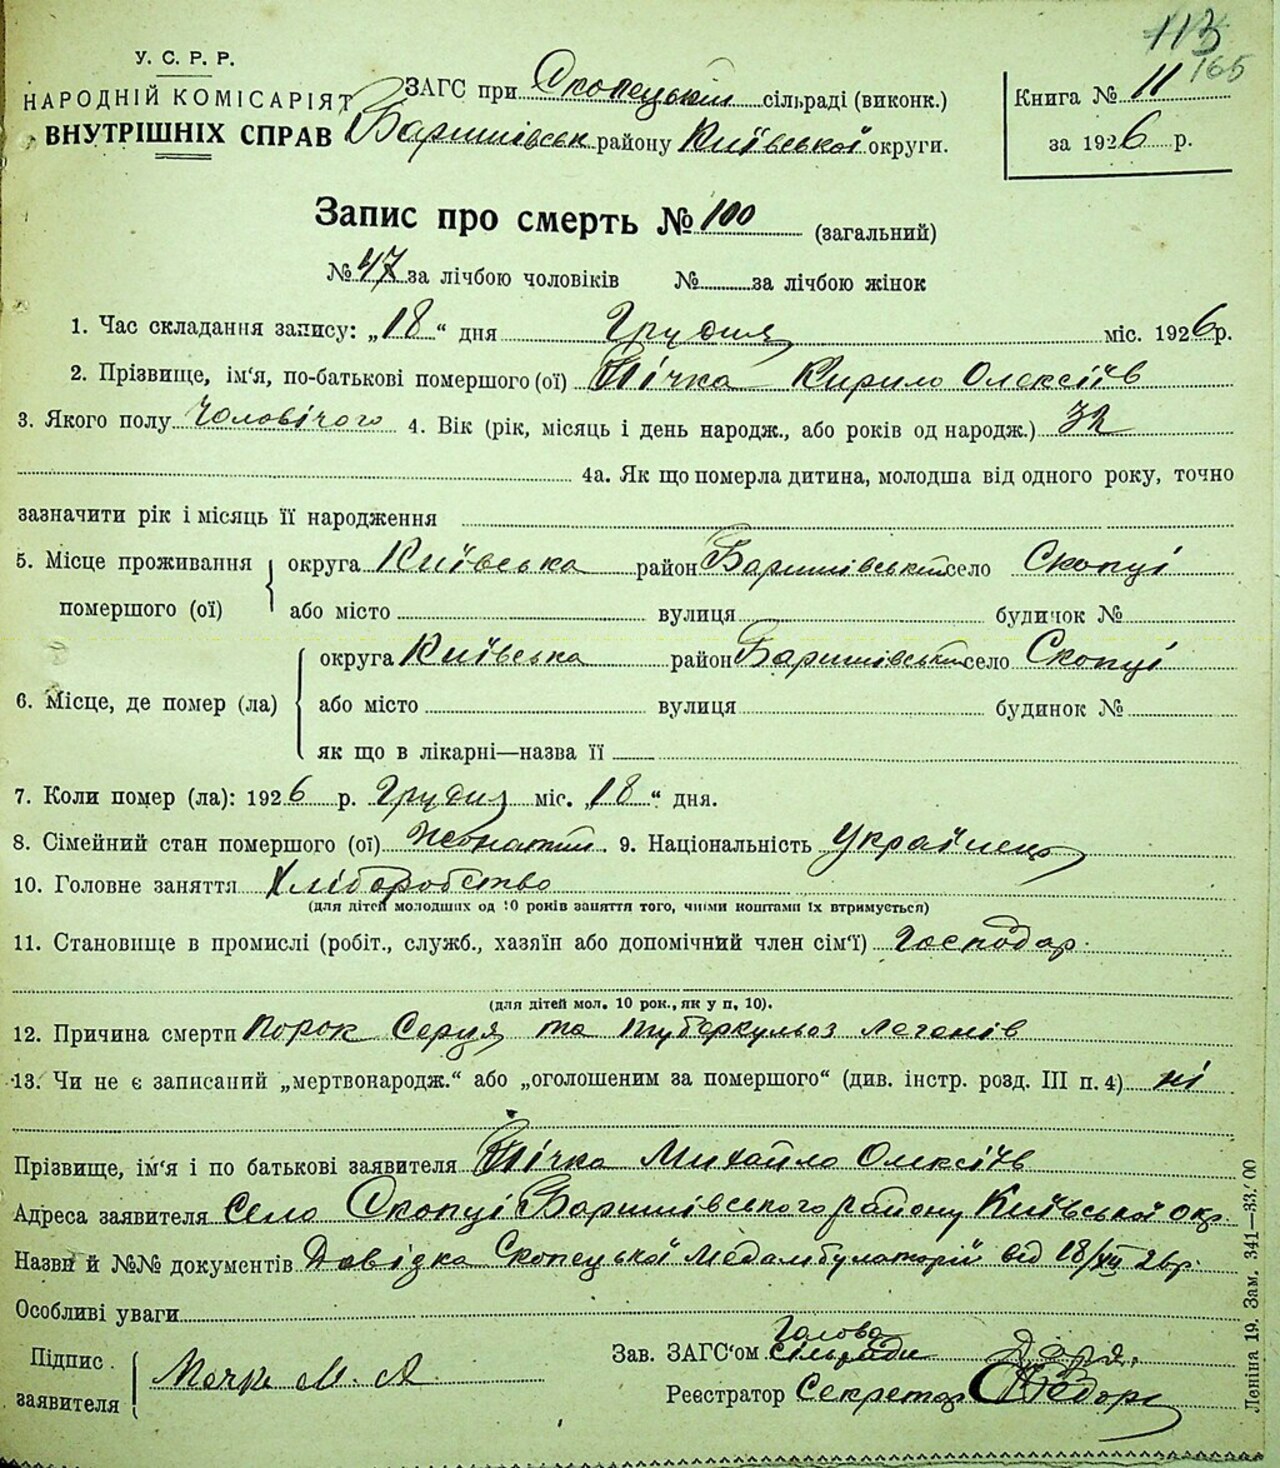 113
165
У. С. Р. Р.
НАРОДНІЙ КОМІСАРІЯТ
ВНУТРІШНІХ СПРАВ
ЗАГС при Скопецькій сільраді (виконк.)
Баришівськ району Київської округи.
Книга № 11
за 1926 р.
Запис про смерть № 100 (загальний)
№ 47 за лічбою чоловіків № за лічбою жінок
1. Час складання запису: „18“ дня Грудня міс. 1926 р.
2. Прізвище, ім'я, по-батькові помершого (ої) Тічка Кирило Олексіїв
3. Якого полу Чоловічого 4. Вік (рік, місяць і день народж., або років од народж.) 32
4а. Як що померла дитина, молодша від одного року, точно
зазначити рік і місяць її народження
5. Місце проживання помершого (ої) округа Київська район Баришівський село Скопці
або місто вулиця будинок №
6. Місце, де помер (ла) округа Київська район Баришівський село Скопці
або місто вулиця будинок №
як що в лікарні—назва її
7. Коли помер (ла): 1926 р. Грудня міс. „18“ дня.
8. Сімейний стан помершого (ої) Жонатий. 9. Національність Українець
10. Головне заняття Хліборобство
(для дітей молодших од 10 років заняття того, чиїми коштами їх втримується)
11. Становище в промислі (робіт., служб., хазяїн або допомічний член сім'ї) Господар.
(для дітей мол. 10 рок., як у п. 10).
12. Причина смерти Порок Серця та туберкульоз легенів
13. Чи не є записаний „мертвонародж.“ або „оголошеним за помершого“ (див. інстр. розд. III п. 4) ні
Прізвище, ім'я і по батькові заявителя Тічка Михайло Олексіїв
Адреса заявителя Село Скопці Баришівського району Київської окр.
Назви й №№ документів Довідка Скопецької Медамбулаторії від 18/XII 26 р.
Особливі уваги
Підпис заявителя М. А.
Зав. ЗАГС'ом Голова сільради
Реєстратор Секретар
Леніна 19. Зам. 341—33.'00